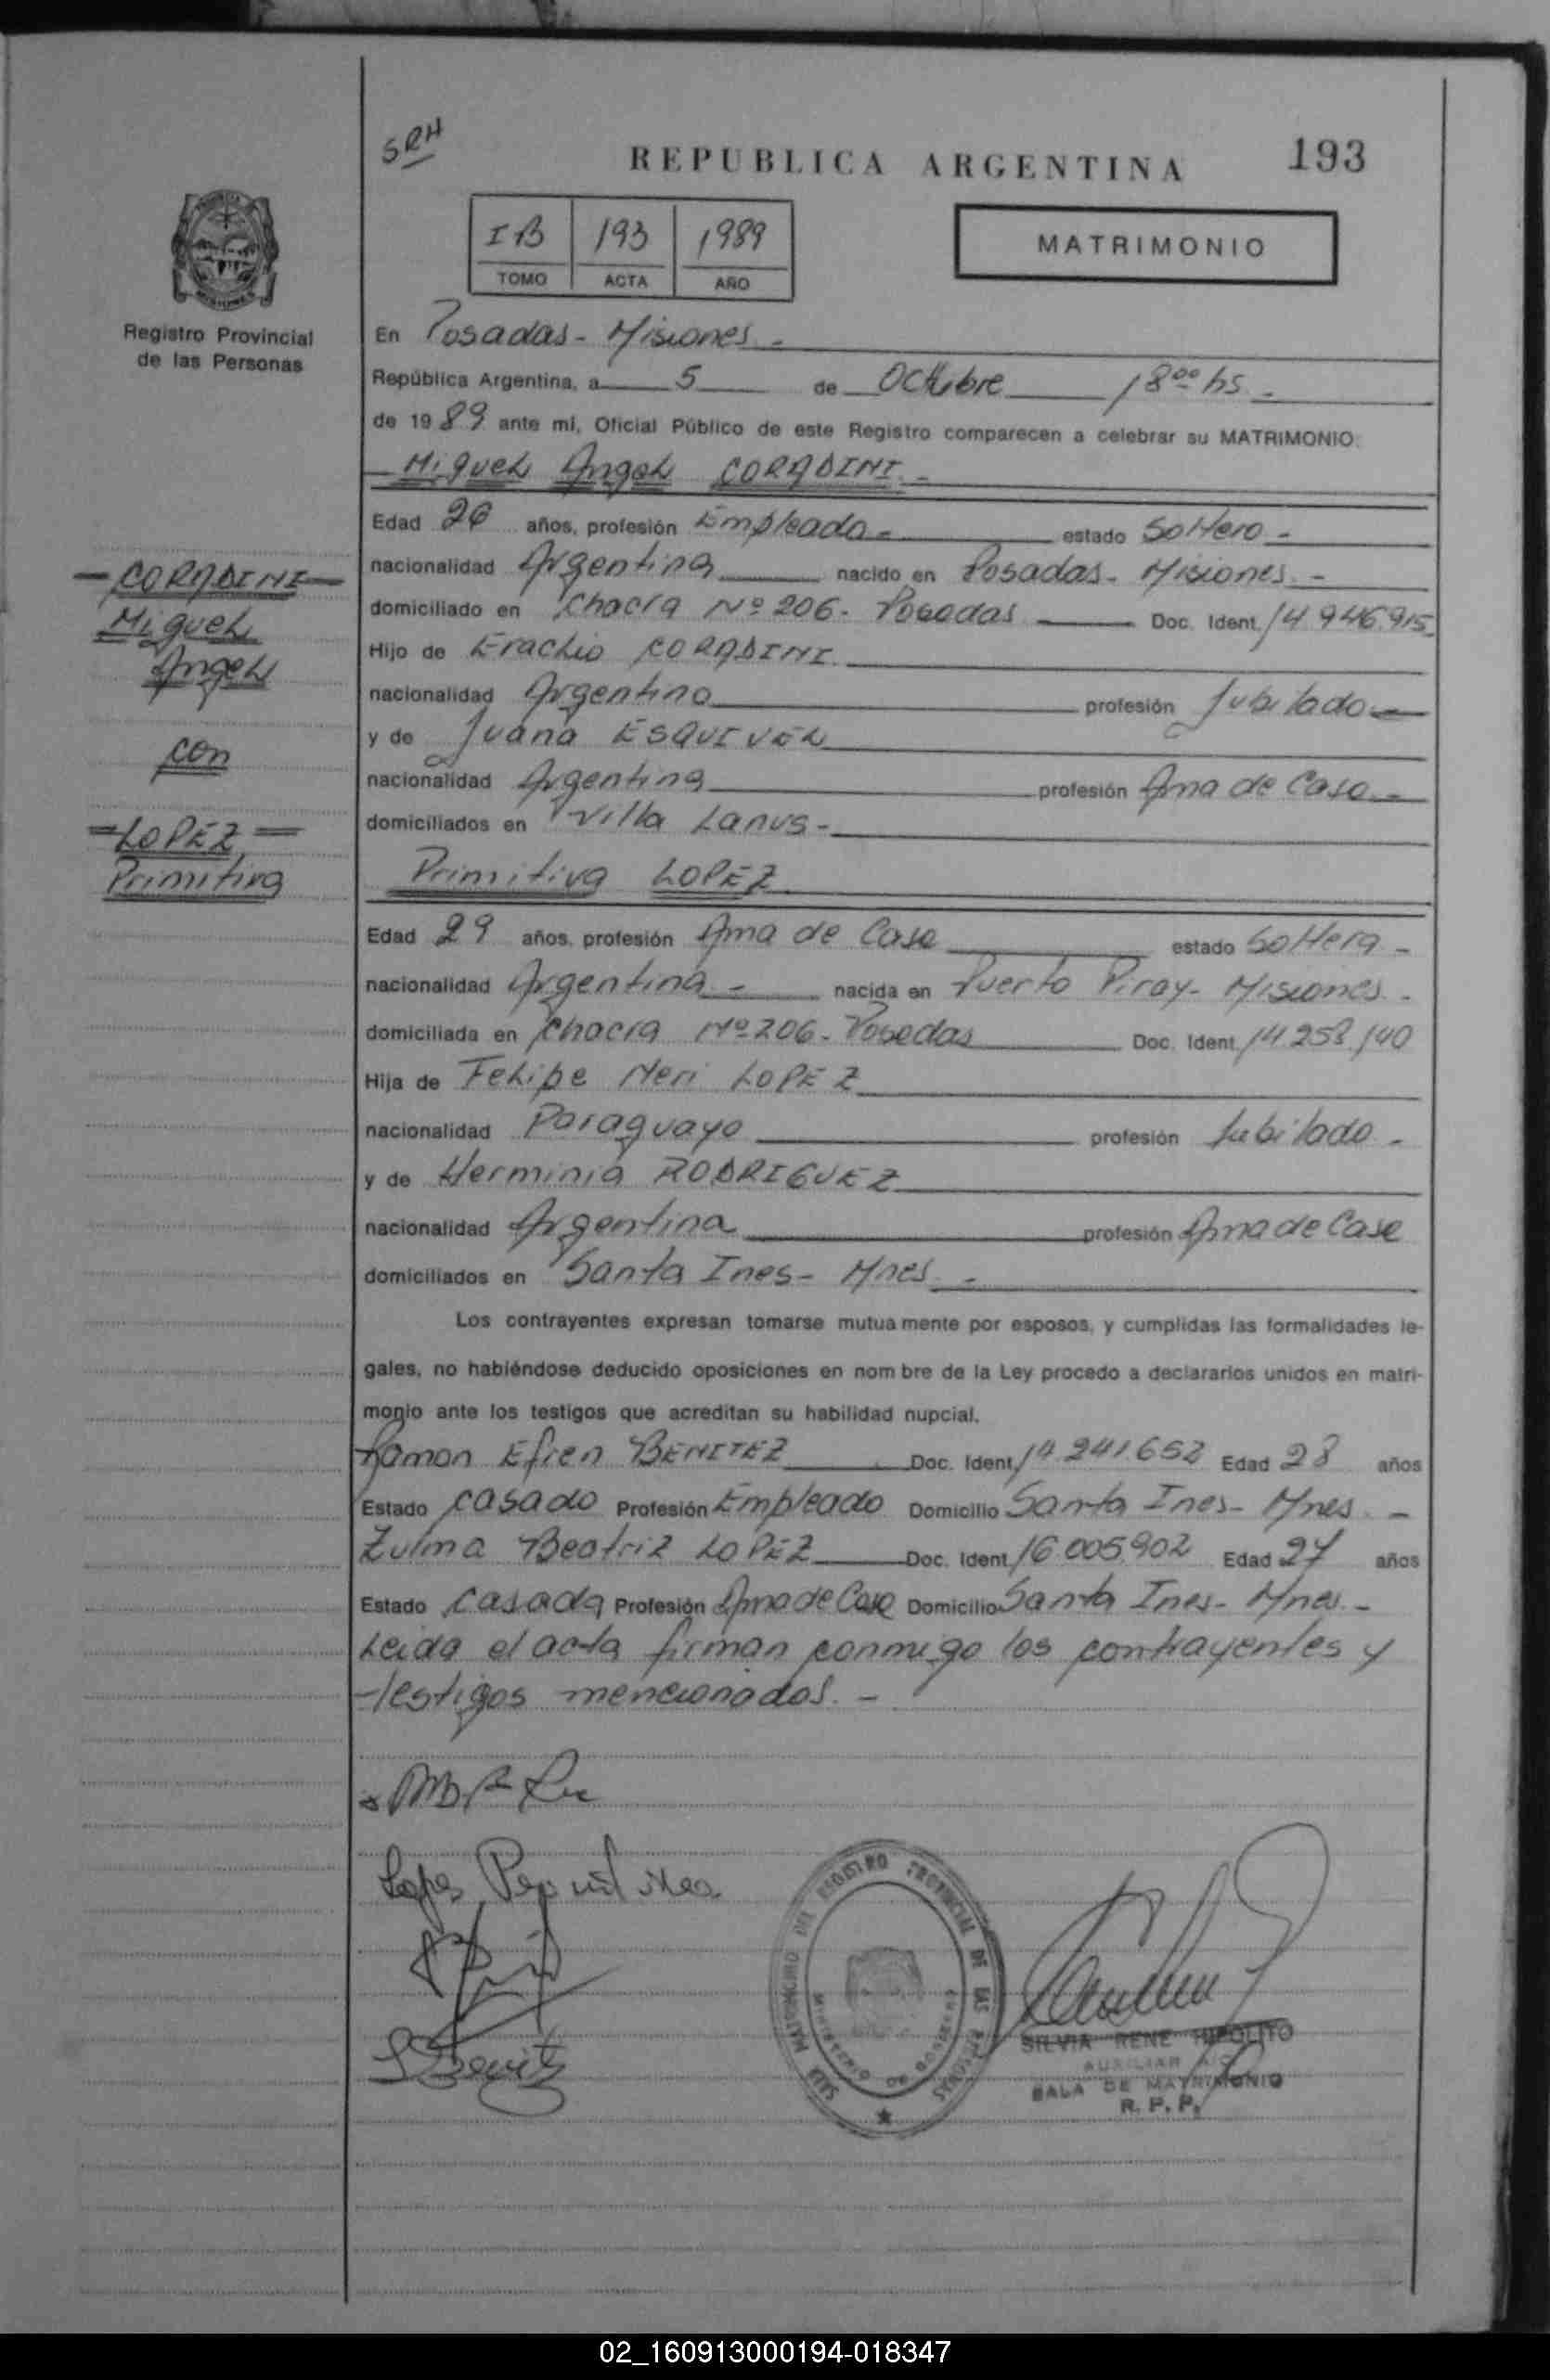 SRH
REPUBLICA ARGENTINA
193
IB 193 1989
TOMO ACTA AÑO
MATRIMONIO
Registro Provincial
de las Personas
En Posadas - Misiones -
República Argentina, a 5 de Octubre 18⁰⁰ hs. -
de 1989 ante mí, Oficial Público de este Registro comparecen a celebrar su MATRIMONIO:
Miguel Angel CORADINI. -
Edad 26 años, profesión Empleado - estado Soltero -
nacionalidad Argentina nacido en Posadas - Misiones. -
domiciliado en Chacra Nº 206 - Posadas Doc. Ident. 14.946.915.
Hijo de Eraclio CORADINI.
nacionalidad Argentino profesión Jubilado -
y de Juana ESQUIVEL
nacionalidad Argentina profesión Ama de Casa -
domiciliados en Villa Lanus -
Primitiva LOPEZ
Edad 29 años, profesión Ama de Casa estado Soltera -
nacionalidad Argentina - nacida en Puerto Piray - Misiones -
domiciliada en Chacra Nº 206 - Posadas Doc. Ident. 14.258.140
Hija de Felipe Neri LOPEZ
nacionalidad Paraguayo profesión Jubilado -
y de Herminia RODRIGUEZ
nacionalidad Argentina profesión Ama de Casa
domiciliados en Santa Ines - Mnes. -
Los contrayentes expresan tomarse mutuamente por esposos, y cumplidas las formalidades le-
gales, no habiéndose deducido oposiciones en nombre de la Ley procedo a declararlos unidos en matri-
monio ante los testigos que acreditan su habilidad nupcial.
Ramon Efren BENITEZ Doc. Ident. 14.241.652 Edad 28 años
Estado Casado Profesión Empleado Domicilio Santa Ines - Mnes. -
Zulma Beatriz LOPEZ Doc. Ident. 16.005.902 Edad 27 años
Estado Casada Profesión Ama de Casa Domicilio Santa Ines - Mnes. -
Leida el acta firman conmigo los contrayentes y
testigos mencionados. -
- CORADINI -
Miguel
Angel
con
= LOPEZ =
Primitiva
SALA MATRIMONIO DEL REGISTRO PROVINCIAL DE LAS PERSONAS
MINISTERIO DE GOBIERNO
SILVIA RENE HIPOLITO
AUXILIAR
SALA DE MATRIMONIO
R. P. P.
02_160913000194-018347